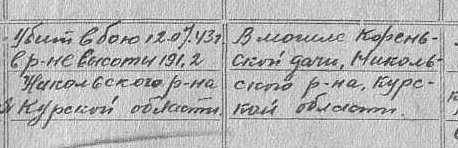 Убит в бою 12.07.43г
в р-не высоты 191,2
Никольского р-на
Курской области.
В могиле Корень-
ской дачи, Николь-
ского р-на, Курс-
кой области.